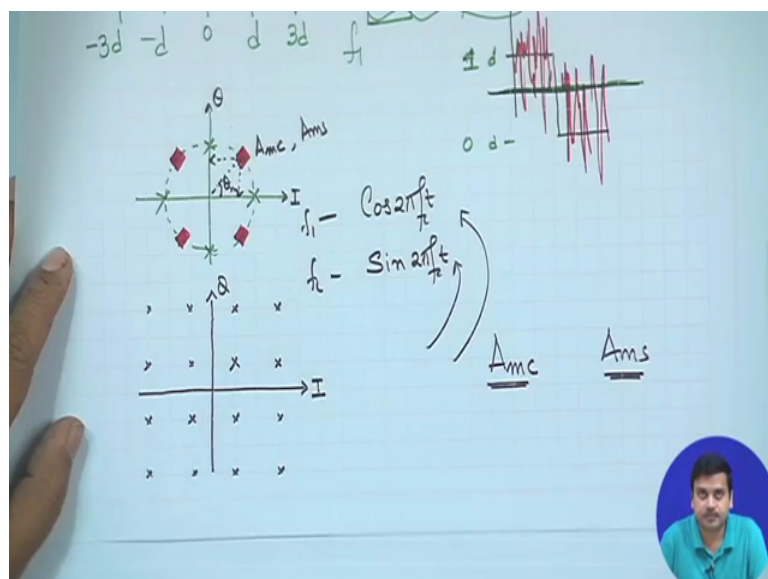 -3d -d 0 d 3d f₁
1 d
0 d -
Q
Amc, Ams
θm
I
f₁ - Cos2πft
f₂ - Sin2πft
Q
I
Amc Ams